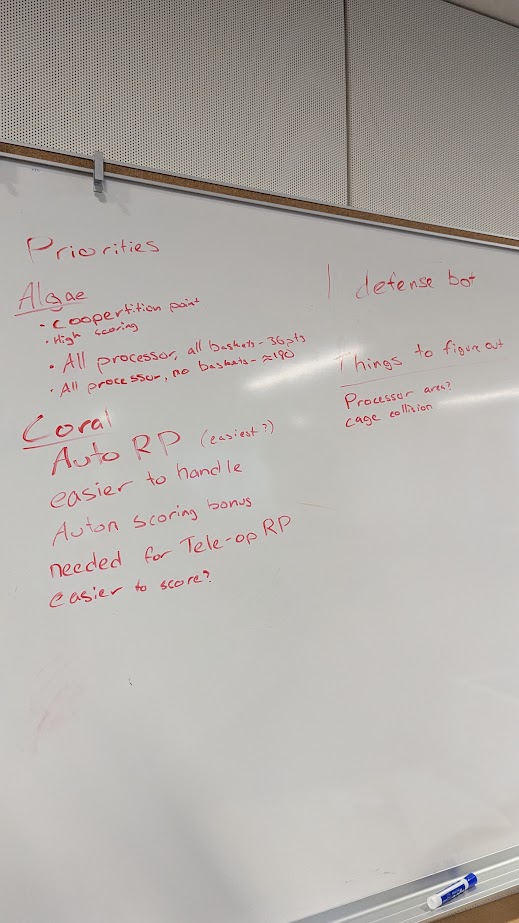 Priorities
Algae
• Coopertition point
• High scoring
• All processor, all baskets - 36pts
• All processor, no baskets - ≈190
Coral
Auto RP (easiest?)
easier to handle
Auton scoring bonus
needed for Tele-op RP
easier to score?
1 defense bot
Things to figure out
Processor area?
cage collision